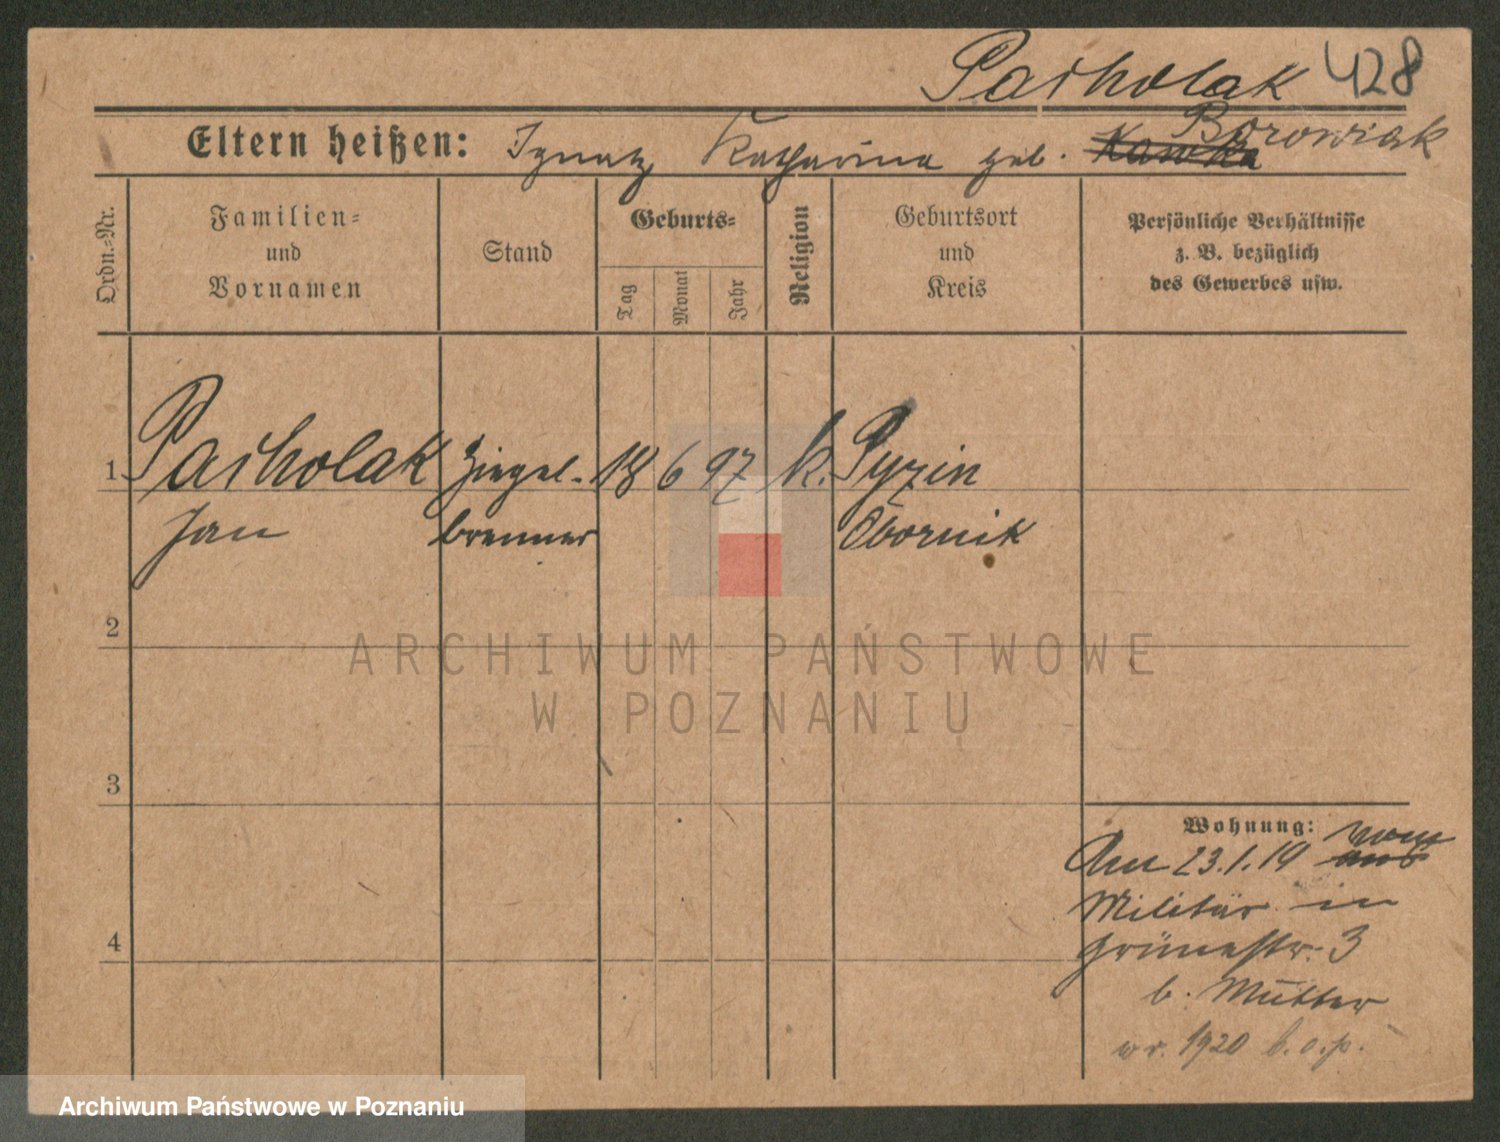 Pacholak 428
Eltern heißen: Ignatz Katharina geb. Kawka Borowiak
Ordn.-Nr.
Familien-
und
Vornamen
Stand
Geburts-
Tag
Monat
Jahr
Religion
Geburtsort
und
Kreis
Persönliche Verhältnisse
z. B. bezüglich
des Gewerbes usw.
1 Pacholak Ziegel- 18 6 97 k. Pyzin
Jan brenner Obornik
2
3
4
Wohnung: vom
Am 23.1.19 aus
Militär in
Grünestr. 3
b. Mutter
w r. 1920 b.o.p.
ARCHIWUM PAŃSTWOWE
W POZNANIU
Archiwum Państwowe w Poznaniu